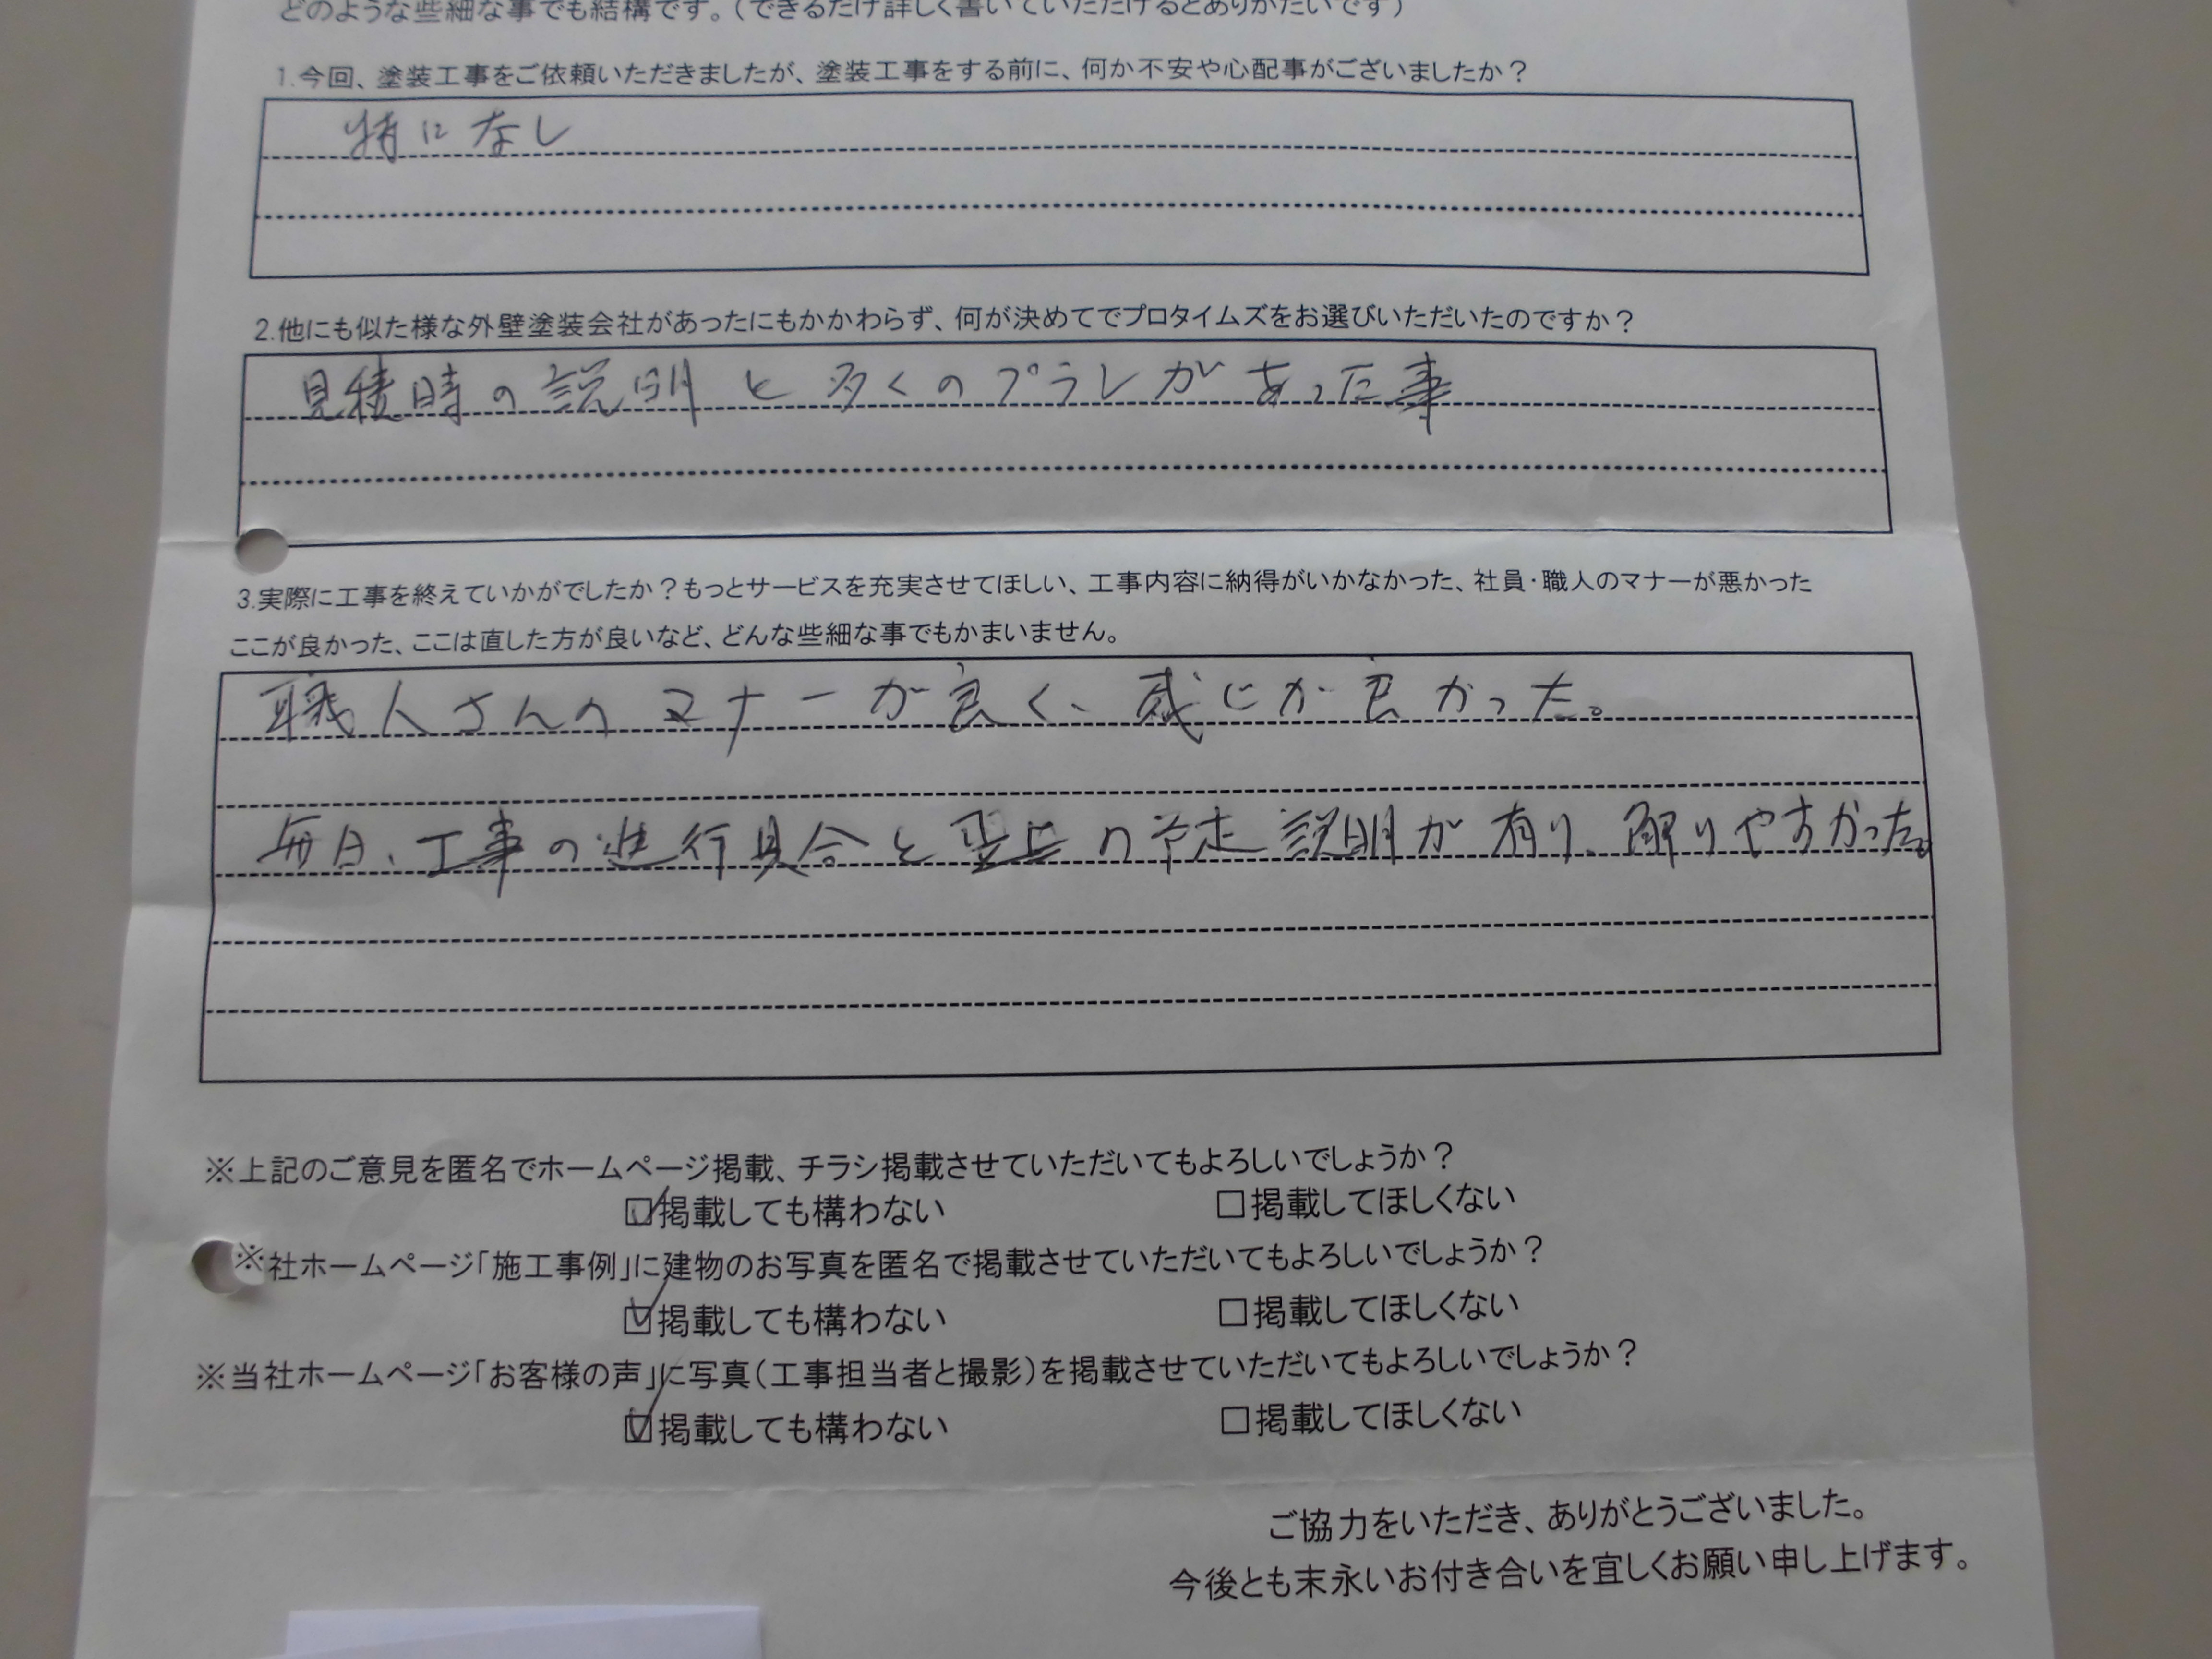 どのような些細な事でも結構です。（できるだけ詳しく書いていただけるとありがたいです）
1.今回、塗装工事をご依頼いただきましたが、塗装工事をする前に、何か不安や心配事がございましたか？
特になし
2.他にも似た様な外壁塗装会社があったにもかかわらず、何が決めてでプロタイムズをお選びいただいたのですか？
見積時の説明と多くのプランがあった事
3.実際に工事を終えていかがでしたか？もっとサービスを充実させてほしい、工事内容に納得がいかなかった、社員・職人のマナーが悪かった
ここが良かった、ここは直した方が良いなど、どんな些細な事でもかまいません。
職人さんのマナーが良く、感じが良かった。
毎日、工事の進行具合と翌日の予定説明が有り、解りやすかった。
※上記のご意見を匿名でホームページ掲載、チラシ掲載させていただいてもよろしいでしょうか？
☑掲載しても構わない □掲載してほしくない
※社ホームページ「施工事例」に建物のお写真を匿名で掲載させていただいてもよろしいでしょうか？
☑掲載しても構わない □掲載してほしくない
※当社ホームページ「お客様の声」に写真（工事担当者と撮影）を掲載させていただいてもよろしいでしょうか？
☑掲載しても構わない □掲載してほしくない
ご協力をいただき、ありがとうございました。
今後とも末永いお付き合いを宜しくお願い申し上げます。